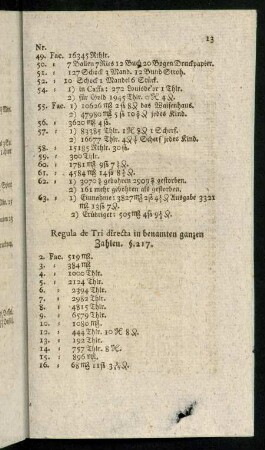 13
Nr.
49. Fac. 16345 Rthlr.
50. " 7 Ballen 7 Ries 12 Buch 20 Bogen Druckpapier.
51. " 127 Schock 2 Mand. 12 Bund Stroh.
52. " 10 Schock 1 Mandel 6 Stück.
54. " 1) in Cassa: 272 Louisd'or 1 Thlr.
2) für Gold 1945 Thlr.
55. Fac. 1) 10626 mß 2 ß 8 das Waisenhaus.
2) 47980 mß 5 ß jedes Kind.
56. " 3620 mß 4 ß.
57. " 1) 83385 Thlr. 1 8 1 Scherf.
2) 16677 Thlr. Scherf jedes Kind.
58. " 15185 Rthlr. 30 ß.
59. " 300 Thlr.
60. " 1781 mß 9 ß
61. " 4584 mß 14 ß
62. " 1) 3070 gebohren 2909 gestorben.
2) 161 mehr gebohren als gestorben.
63. " 1) Einnahme: 3827 mß 2 ß Ausgabe 3321
mß 13 ß 7
2) Erübriget: 505 mß 4 ß
Regula de Tri directa in benamten ganzen
Zahlen. §. 217.
2. Fac. 519 mß.
3. " 384 mß
4. " 1000 Thlr.
5. " 2124 Thlr.
6. " 2394 Thlr.
7. " 2982 Thlr.
8. " 4815 Thlr.
9. " 6579 Thlr.
10. " 1080 mß.
12. " 444 Thlr. 10 8
13. " 192 Thlr.
14. " 757 Thlr. 8
15. " 896 mß.
16. " 68 mß 11 ß